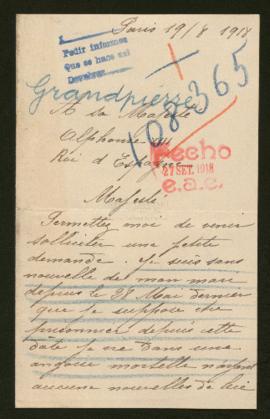 Paris 19/8 1918
Pedir informes
que se hace así
Grandpierre
108365
A sa Majesté
Alphonse XIII
Roi d'Espagne
Fecho
27 SET. 1918
e.a.c.
Majesté
Permettez moi de venir
solliciter une petite
demande. je suis sans
nouvelle de mon mari
depuis le 28 Mai dernier
que je suppose être
prisonnier depuis cette
date je vie dans une
angoisse mortelle
aucune nouvelles de lui